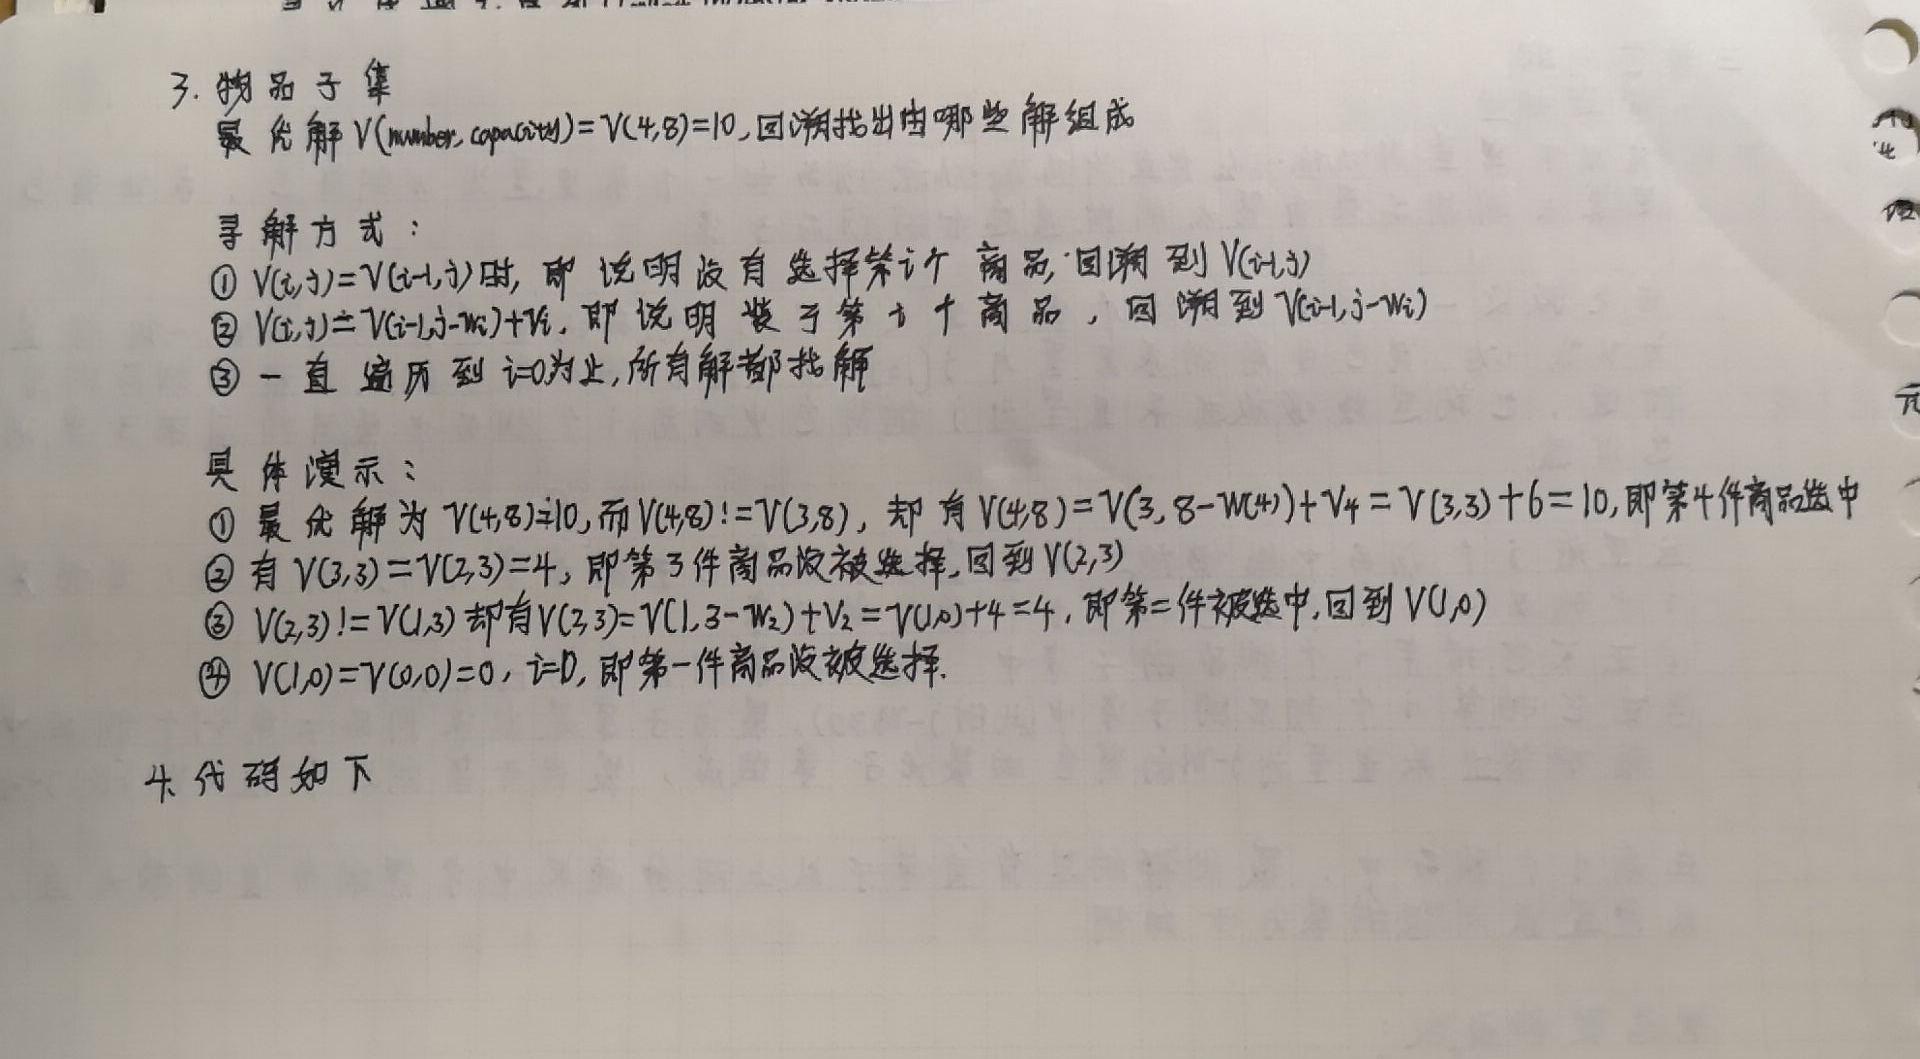 3. 物品子集
最优解 V(number, capacity)=V(4,8)=10,回溯找出由哪些解组成
寻解方式:
① V(i,j)=V(i-1,j)时, 即说明没有选择第i个商品,回溯到V(i-1,j)
② V(i,j)=V(i-1,j-wi)+vi, 即说明装了第i个商品, 回溯到V(i-1,j-wi)
③ 一直遍历到i=0为止,所有解都找解
具体演示:
① 最优解为V(4,8)=10,而V(4,8)!=V(3,8), 却有V(4,8)=V(3, 8-W(4))+V4=V(3,3)+6=10,即第4件商品选中
② 有V(3,3)=V(2,3)=4, 即第3件商品没被选择,回到V(2,3)
③ V(2,3)!=V(1,3)却有V(2,3)=V(1,3-W2)+V2=V(1,0)+4=4, 即第二件被选中,回到V(1,0)
④ V(1,0)=V(0,0)=0, i=0, 即第一件商品没被选择.
4. 代码如下